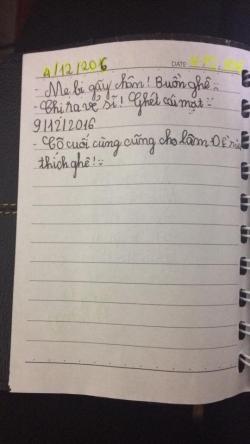 4/12/2016 DATE
- Mẹ bị gãy chân! Buồn ghê
- Chị ra vẻ sĩ! Ghét cái mặt
9/12/2016
- Cô cuối cùng cũng cho làm Đề
thích ghê!